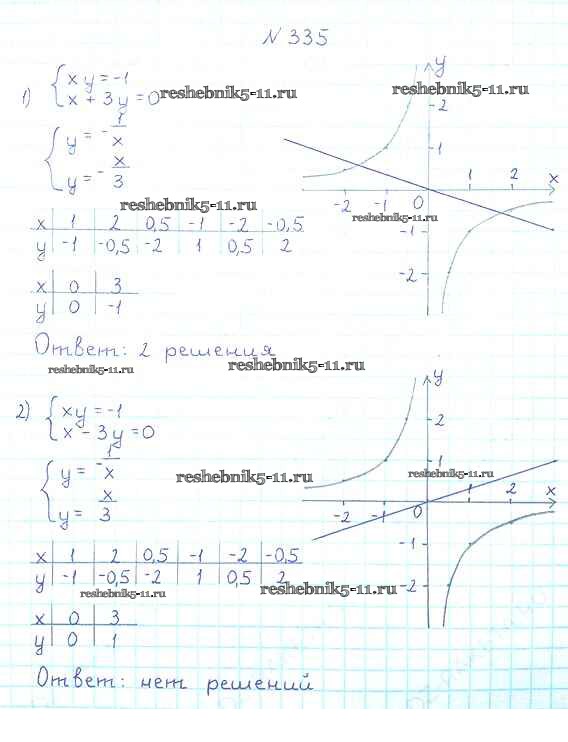 N 335
1) { xy = -1
x + 3y = 0
reshebnik5-11.ru
reshebnik5-11.ru
{ y = -1/x
y = -x/3
reshebnik5-11.ru
x | 1 | 2 | 0,5 | -1 | -2 | -0,5
y | -1 | -0,5 | -2 | 1 | 0,5 | 2
x | 0 | 3
y | 0 | -1
y
2
1
-2 -1 0 1 2 x
reshebnik5-11.ru
-1
-2
Ответ: 2 решения
reshebnik5-11.ru
reshebnik5-11.ru
2) { xy = -1
x - 3y = 0
{ y = -1/x
y = x/3
reshebnik5-11.ru
x | 1 | 2 | 0,5 | -1 | -2 | -0,5
y | -1 | -0,5 | -2 | 1 | 0,5 | 2
reshebnik5-11.ru
reshebnik5-11.ru
x | 0 | 3
y | 0 | 1
y
2
1
reshebnik5-11.ru
-2 -1 0 1 2 x
-1
-2
Ответ: нет решений